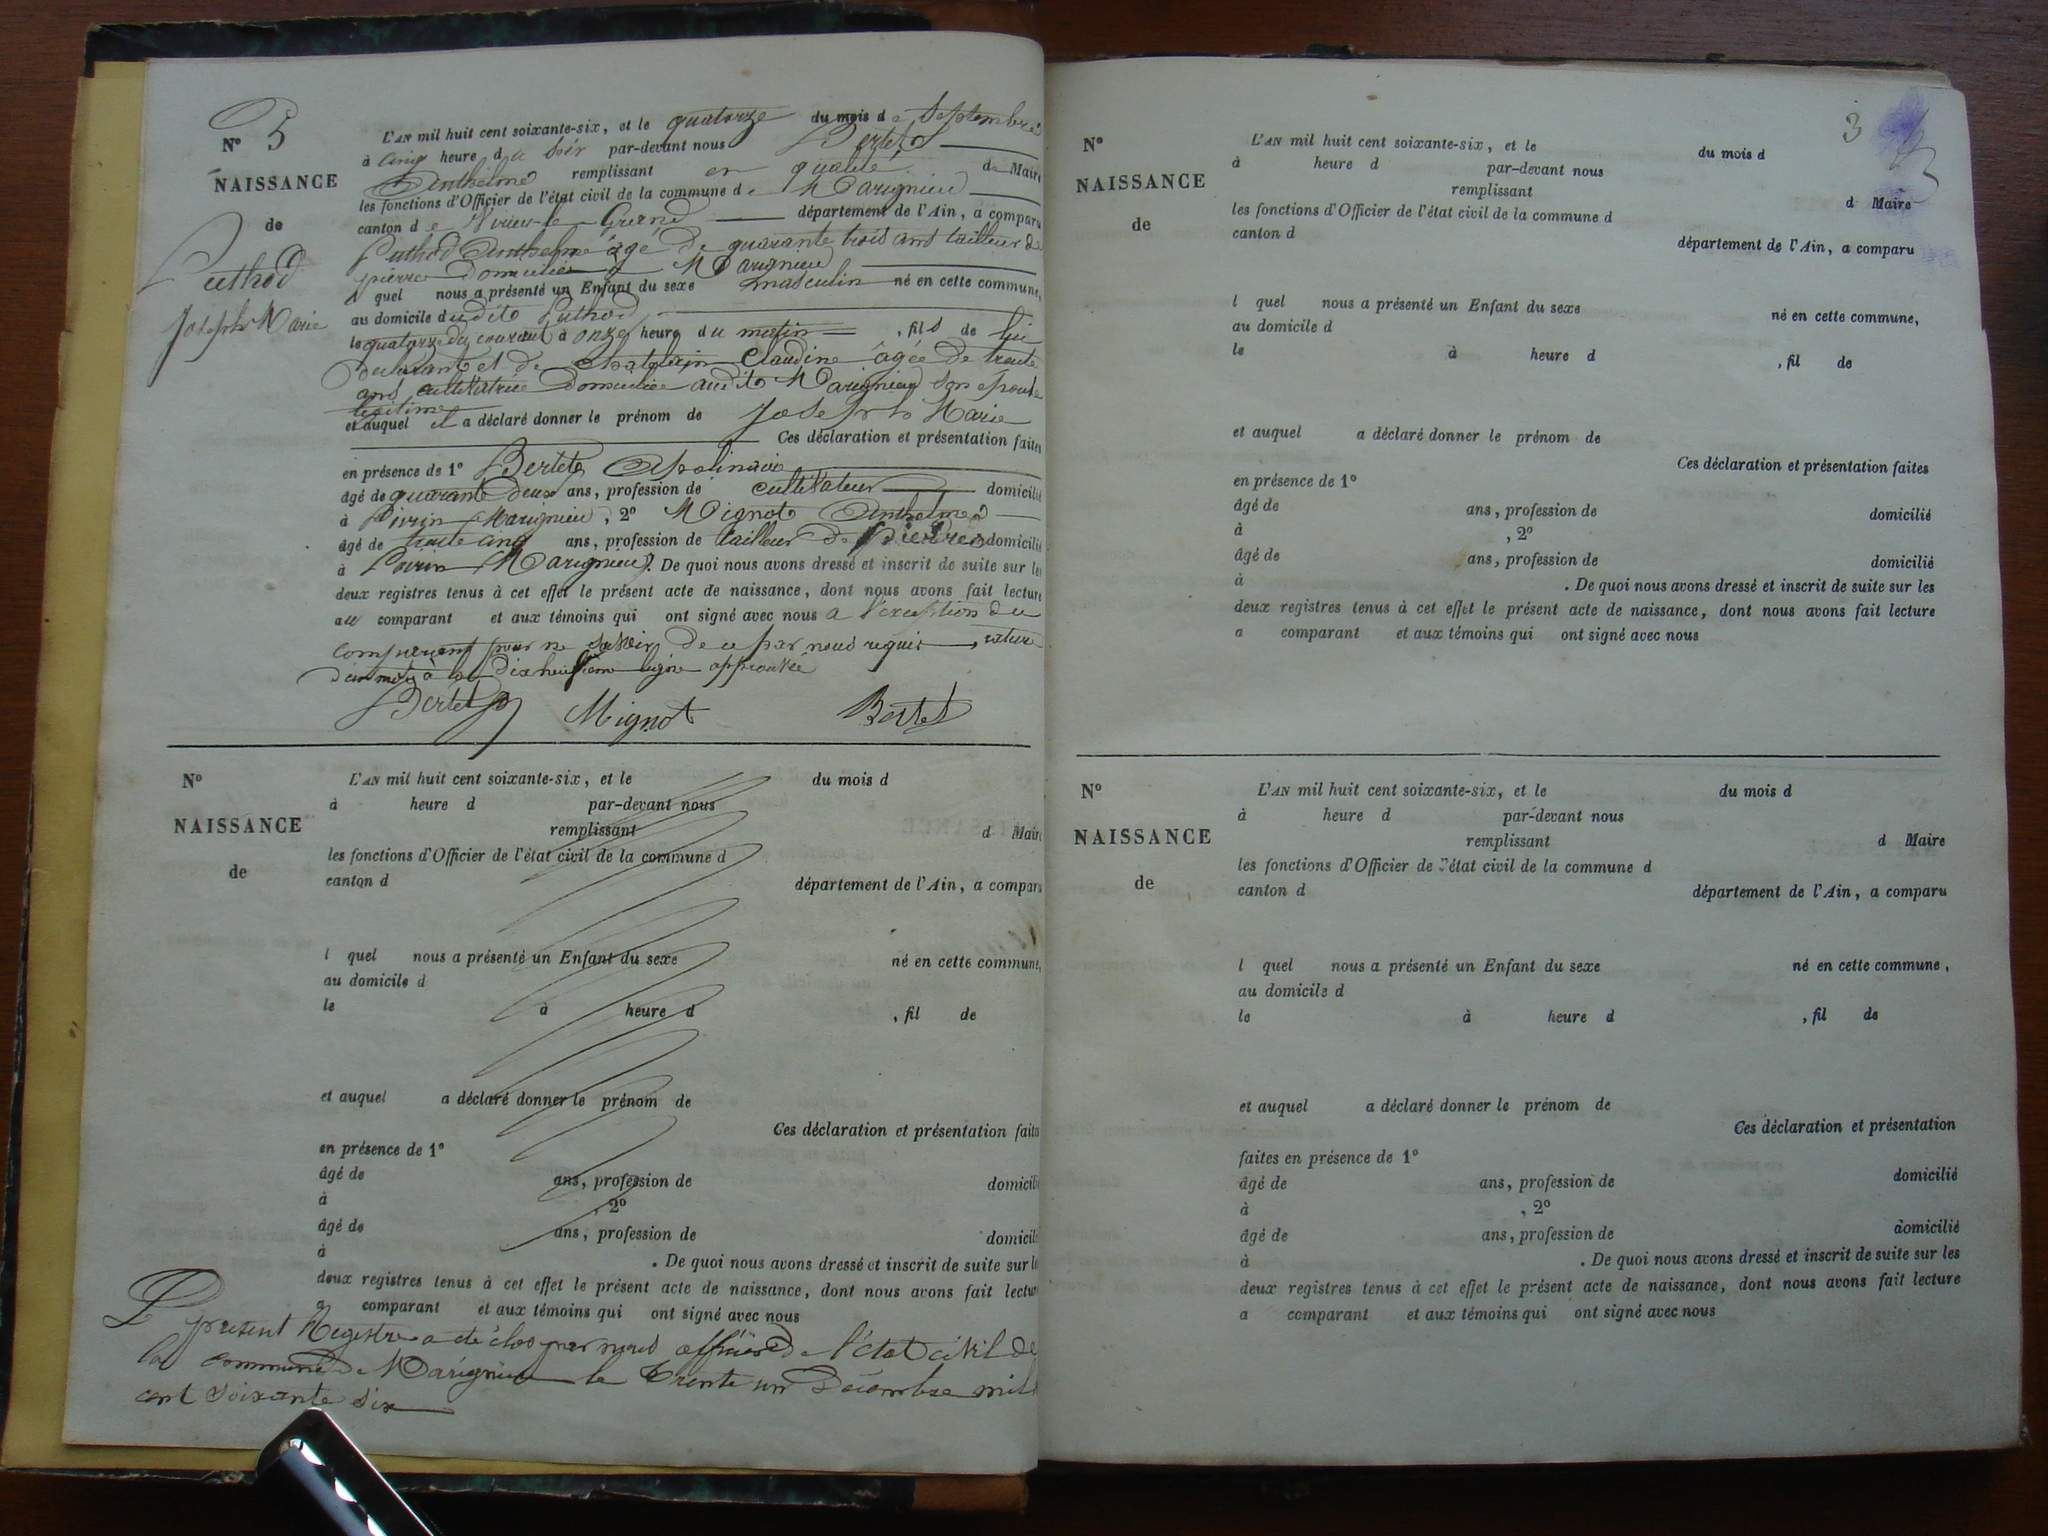 N° 5
NAISSANCE
de
Puthod
Joseph Marie
L'AN mil huit cent soixante-six, et le quatorze du mois de Septembre
à cinq heure du soir par-devant nous Bertet
Anthelme remplissant en qualité de Maire
les fonctions d'Officier de l'état civil de la commune de Marignieu
canton de Virieu-le-Grand département de l'Ain, a comparu
Puthod Anthelme âgé de quarante trois ans tailleur de
pierre domicilié à Marignieu
l quel nous a présenté un Enfant du sexe masculin né en cette commune,
au domicile dudit Puthod
le quatorze du courant à onze heure du matin, fils de lui
déclarant et de Claudine âgée de trente
ans cultivatrice domiciliée audit Marignieu son épouse
légitime
et auquel il a déclaré donner le prénom de Joseph Marie
Ces déclaration et présentation faites
en présence de 1° Bertet Apolinaire
âgé de quarante deux ans, profession de cultivateur domicilié
à Poirin Marignieu, 2° Mignot Anthelme
âgé de trente cinq ans, profession de tailleur de pierres domicilié
à Poirin Marignieu. De quoi nous avons dressé et inscrit de suite sur les
deux registres tenus à cet effet le présent acte de naissance, dont nous avons fait lecture
au comparant et aux témoins qui ont signé avec nous à l'exception du
comparant pour ne savoir de ce par nous requis
d'un mot à la dixhuitième ligne approuvée
Bertet Mignot Bertet
N°
NAISSANCE
de
L'AN mil huit cent soixante-six, et le du mois d
à heure d par-devant nous
remplissant d Maire
les fonctions d'Officier de l'état civil de la commune d
canton d département de l'Ain, a comparu
l quel nous a présenté un Enfant du sexe né en cette commune,
au domicile d
le à heure d , fil de
et auquel a déclaré donner le prénom de
Ces déclaration et présentation faites
en présence de 1°
âgé de ans, profession de domicilié
à , 2°
âgé de ans, profession de domicilié
à . De quoi nous avons dressé et inscrit de suite sur les
deux registres tenus à cet effet le présent acte de naissance, dont nous avons fait lecture
a comparant et aux témoins qui ont signé avec nous
Le présent Registre a été clos par nous officier de l'état civil de
la commune de Marignieu le trente un Décembre mil
cent soixante six
3
3
N°
NAISSANCE
de
L'AN mil huit cent soixante-six, et le du mois d
à heure d par-devant nous
remplissant d Maire
les fonctions d'Officier de l'état civil de la commune d
canton d département de l'Ain, a comparu
l quel nous a présenté un Enfant du sexe né en cette commune,
au domicile d
le à heure d , fil de
et auquel a déclaré donner le prénom de
Ces déclaration et présentation faites
en présence de 1°
âgé de ans, profession de domicilié
à , 2°
âgé de ans, profession de domicilié
à . De quoi nous avons dressé et inscrit de suite sur les
deux registres tenus à cet effet le présent acte de naissance, dont nous avons fait lecture
a comparant et aux témoins qui ont signé avec nous
N°
NAISSANCE
de
L'AN mil huit cent soixante-six, et le du mois d
à heure d par-devant nous
remplissant d Maire
les fonctions d'Officier de l'état civil de la commune d
canton d département de l'Ain, a comparu
l quel nous a présenté un Enfant du sexe né en cette commune,
au domicile d
le à heure d , fil de
et auquel a déclaré donner le prénom de
Ces déclaration et présentation
faites en présence de 1°
âgé de ans, profession de domicilié
à , 2°
âgé de ans, profession de domicilié
à . De quoi nous avons dressé et inscrit de suite sur les
deux registres tenus à cet effet le présent acte de naissance, dont nous avons fait lecture
a comparant et aux témoins qui ont signé avec nous